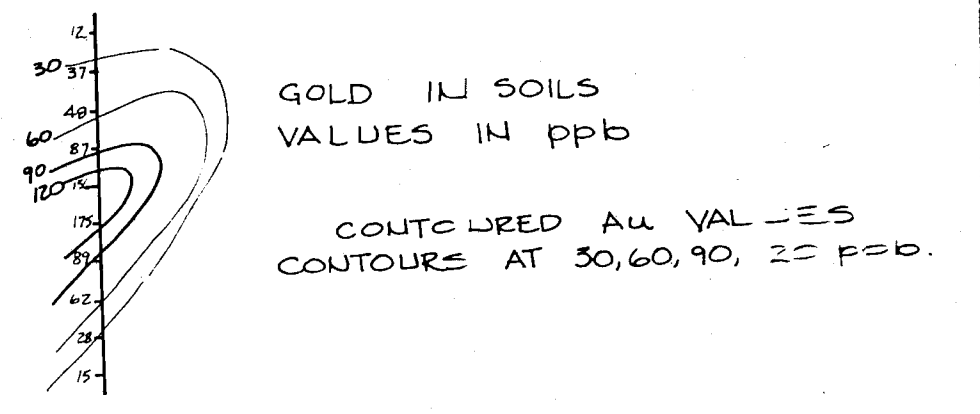 12
30
37
48
60
87
90
120
175
89
62
28
15
GOLD IN SOILS
VALUES IN ppb
CONTOURED AU VALUES
CONTOURS AT 30, 60, 90,